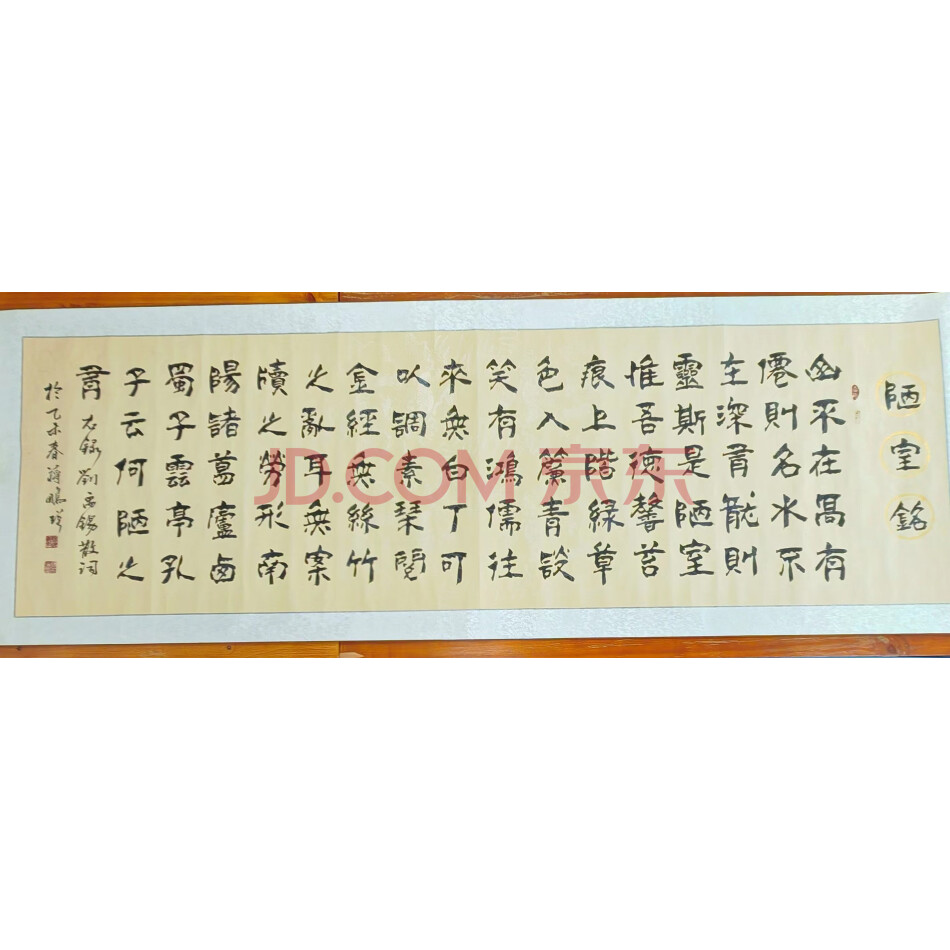 陋室銘
山不在高有
僊則名水不
在深有龍則
靈斯是陋室
惟吾德馨苔
痕上階綠草
色入簾青談
笑有鴻儒往
來無白丁可
以調素琴閱
金經無絲竹
之亂耳無案
牘之勞形南
陽諸葛廬西
蜀子雲亭孔
子云何陋之
有 右錄劉禹錫散詞
於乙未春蔣鵬
JD.COM 京东